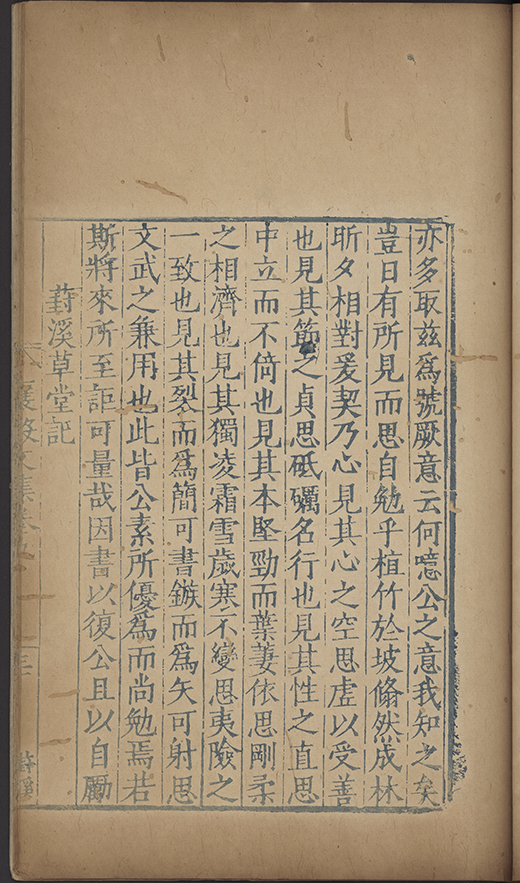 亦多取茲爲號厥意云何噫公之意我知之矣
豈日有所見而思自勉乎植竹於坡翛然成林
昕夕相對爰契乃心見其心之空思虛以受善
也見其節之貞思砥礪名行也見其性之直思
中立而不倚也見其本堅勁而葉萋依思剛柔
之相濟也見其獨凌霜雪歲寒不變思夷險之
一致也見其裂而爲簡可書鏃而爲矢可射思
文武之兼用也此皆公素所優爲而尚勉焉若
斯將來所至詎可量哉因書以復公且以自勵
葑溪草堂記
文集卷五